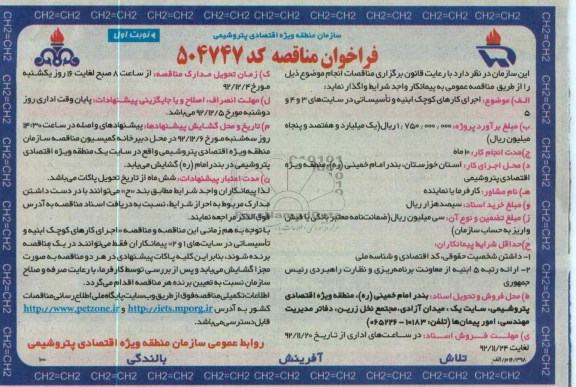 CH2=CH2 CH2=CH2 CH2=CH2 CH2=CH2 CH2=CH2 CH2=CH2 CH2=CH2 CH2=CH2
سازمان منطقه ویژه اقتصادی پتروشیمی
نوبت اول
فراخوان مناقصه کد ۵۰۴۷۴۷
این سازمان در نظر دارد با رعایت قانون برگزاری مناقصات انجام موضوع ذیل
را از طریق مناقصه عمومی به پیمانکار واجد شرایط واگذار نماید:
الف) موضوع: اجرای کارهای کوچک ابنیه و تأسیساتی در سایت‌های ۳ و ۴ و
۵
ب) مبلغ برآورد پروژه: ۱/۷۵۰/۰۰۰/۰۰۰ ریال (یک میلیارد و هفتصد و پنجاه
میلیون ریال)
ج) مدت انجام کار: ۱۰ ماه
د) محل اجرای کار: استان خوزستان، بندر امام خمینی (ره)، منطقه ویژه
اقتصادی پتروشیمی
هـ) نام مشاور: کارفرما یا نماینده
و) مبلغ خرید اسناد: سیصد هزار ریال
ز) مبلغ تضمین و نوع آن: سی میلیون ریال (ضمانت‌نامه معتبر بانکی یا فیش
واریز به حساب سازمان)
ح) حداقل شرایط پیمانکاران:
۱- داشتن شخصیت حقوقی، کد اقتصادی و شناسه ملی
۲- ارائه رتبه ۵ ابنیه از معاونت برنامه‌ریزی و نظارت راهبردی رئیس
جمهوری
ط) محل فروش و تحویل اسناد: بندر امام خمینی (ره)، منطقه ویژه اقتصادی
پتروشیمی، سایت یک، میدان آزادی، مجتمع نخل زرین، دفاتر مدیریت
مهندسی، امور پیمان‌ها (تلفن: ۱۰۱۸۳-۰۶۵۲۲۶)
ی) مهلت فروش اسناد: در ساعت‌های اداری از تاریخ ۹۲/۱۱/۲۰
لغایت ۹۲/۱۱/۲۴
ک) زمان تحویل مدارک مناقصه: از ساعت ۸ صبح لغایت ۱۶ روز یکشنبه
مورخ ۹۲/۱۲/۴
ل) مهلت انصراف، اصلاح و یا جایگزینی پیشنهادات: پایان وقت اداری روز
دوشنبه مورخ ۹۲/۱۲/۵ می‌باشد.
م) تاریخ و محل گشایش پیشنهادها: پیشنهادهای واصله در ساعت ۱۴:۳۰
روز سه‌شنبه مورخ ۹۲/۱۲/۶ در محل دبیرخانه کمیسیون مناقصه سازمان
منطقه ویژه اقتصادی پتروشیمی واقع در سایت یک منطقه ویژه اقتصادی
پتروشیمی در بندر امام (ره) گشایش می‌یابد.
ن) مدت اعتبار پیشنهادات: شش ماه از تاریخ تحویل پاکات می‌باشد.
لذا پیمانکاران واجد شرایط مطابق بند «ح» می‌توانند با در دست داشتن
مدارک مربوط به احراز شرایط، نسبت به دریافت اسناد مناقصه به آدرس
فوق‌الذکر مراجعه نمایند.
با توجه به هم زمانی این مناقصه و مناقصه «اجرای کارهای کوچک ابنیه و
تأسیساتی در سایت‌های ۱ و ۲» پیمانکاران فقط می‌توانند در یک مناقصه
برنده شوند، بنابر این کلیه پاکات پیشنهادی در هر دو مناقصه به صورت
مجزا گشایش می‌یابد و پس از بررسی توسط کارفرما، با رعایت صرفه و صلاح
سازمان نسبت به تعیین برنده هر مناقصه اقدام می‌گردد.
اطلاعات تکمیلی مناقصه فوق از طریق وبسایت پایگاه ملی اطلاع‌رسانی مناقصات
کشور به آدرس http://iets.mporg.ir و http://www.petzone.ir
قابل دسترسی می‌باشد.
روابط عمومی سازمان منطقه ویژه اقتصادی پتروشیمی
تلاش آفرینش بالندگی
CH2=CH2 CH2=CH2 CH2=CH2 CH2=CH2 CH2=CH2 CH2=CH2 CH2=CH2 CH2=CH2